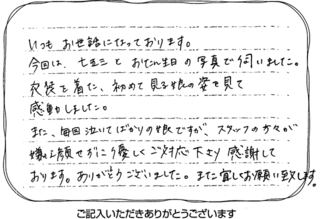 いつもお世話になっております。
今回は、七五三とお誕生日の写真で伺いました。
衣装を着た、初めて見る娘の姿を見て
感動しました。
また、毎回泣いてばかりの娘ですが、スタッフの方々が
嫌な顔せずにこう優しくご対応下さり感謝して
おります。ありがとうございました。また宜しくお願い致します。
ご記入いただきありがとうございます